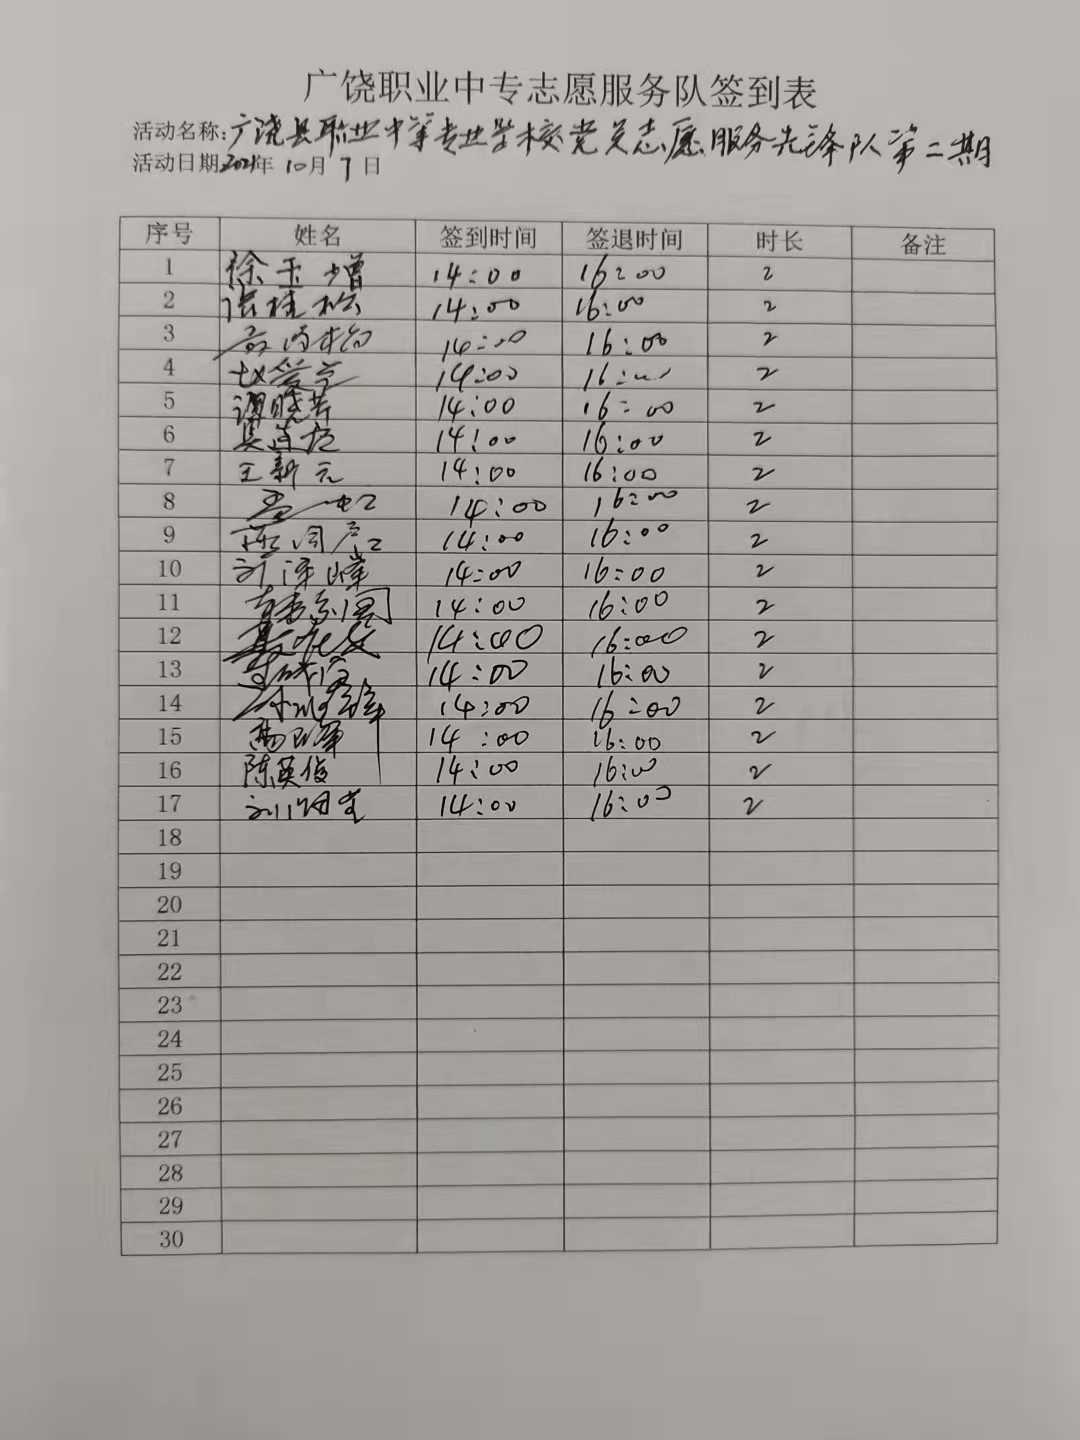 广饶职业中专志愿服务队签到表
活动名称:广饶县职业中等专业学校党员志愿服务先锋队第二期
活动日期2021年10月7日
序号 姓名 签到时间 签退时间 时长 备注
1 徐玉增 14:00 16:00 2
2 张桂松 14:00 16:00 2
3 14:00 16:00 2
4 赵爱芝 14:00 16:00 2
5 谭晓芳 14:00 16:00 2
6 14:00 16:00 2
7 王新元 14:00 16:00 2
8 14:00 16:00 2
9 14:00 16:00 2
10 14:00 16:00 2
11 14:00 16:00 2
12 14:00 16:00 2
13 14:00 16:00 2
14 14:00 16:00 2
15 14:00 16:00 2
16 陈英俊 14:00 16:00 2
17 14:00 16:00 2
18
19
20
21
22
23
24
25
26
27
28
29
30